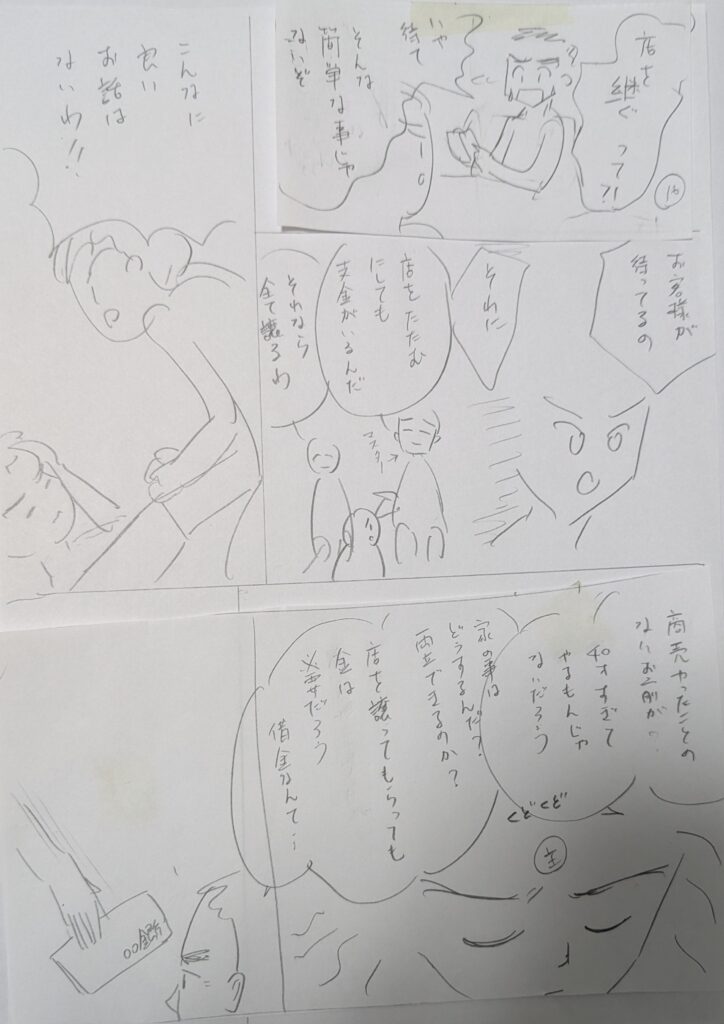 店を
継ぐって?!
いや
待て
そんな
簡単な事じゃ
ないぞ
お客様が
待ってるの
それに
店をたたむ
にしても
お金がいるんだ
それなら
全て譲るわ
マスター→
こんなに
良い
お話は
ないわ!!
商売やったことの
ないお前が?
やるもんじゃ
ないだろう
家の事は
どうするんだ?
両立できるのか?
店を譲ってもらっても
金は
必要だろう
借金なんて…
くどくど
主
〇〇銀行